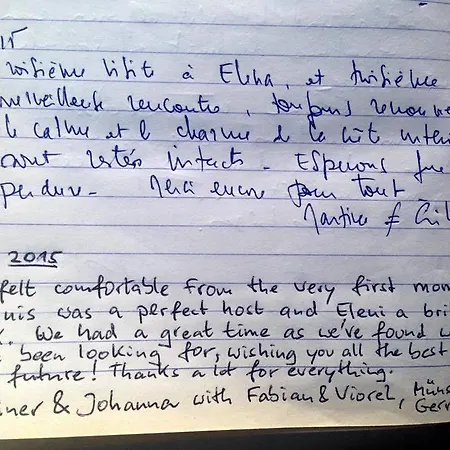 15
visite à Elena, et troisième
merveilleuse rencontre, toujours
le calme et le charme de ce
sont restés intacts. Espérons que
perdure. Merci encore pour tout
Martine &
2015
felt comfortable from the very first mom
nis was a perfect host and Eleni a bri
. We had a great time as we've found w
been looking for, wishing you all the best
future! Thanks a lot for everything.
ner & Johanna with Fabian & Viorel, Müns
Gerr